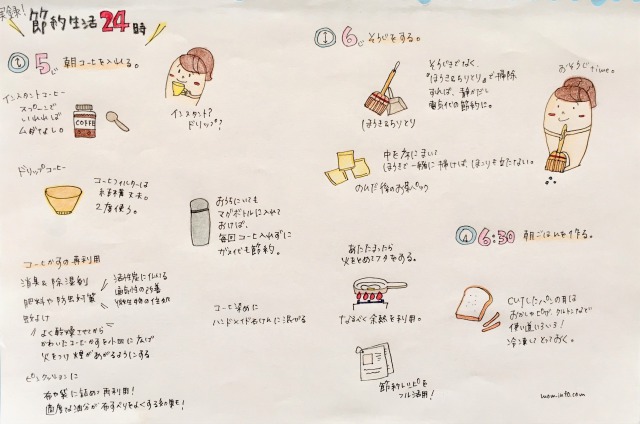 実録!
節約生活24時
5じ 朝コーヒーを入れる。
インスタントコーヒー
スプーンで
いれれば
ムダなし。
COFFE
インスタント?
ドリップ?
ドリップコーヒー
コーヒーフィルターは
丈夫。
2度使う。
おうちにいても
マグボトルに入れて
おけば、
毎回コーヒー入れずに
ガスイだも節約。
コーヒーかすの再利用
消臭&除湿剤
肥料や防虫対策
活性炭に似ている
通気性の改善
微生物の住処
虫よけ
よく乾燥させてから
かわいたコーヒーかすを小皿に広げ
火をつけ煙があがるようにする
ピンクッションに
布や袋に詰めて再利用!
適度な油分が布すべりをよくする効果も!
コーヒー染めに
ハンドメイド石けんに混ぜる
6じ そうじをする。
そうじきでなく、
『ほうき&ちりとり』で掃除
すれば、静かだし
電気代の節約に。
ほうき&ちりとり
おそうじtime。
中を床にまいて
ほうきで一緒に掃けば、ほこりも立たない。
のんだ後のお茶パック
6:30 朝ごはんを作る。
あたたまったら
火をとめてフタをする。
なるべく余熱を利用。
節約レシピを
フル活用!
CUTしたパンの耳は
おかしやピザ、クルトンなどで
使い道いろいろ!
冷凍してとっておく。